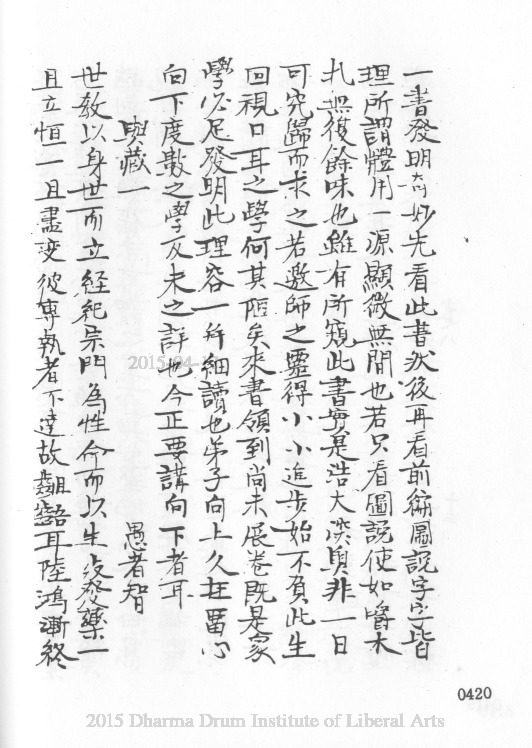 一書發明奇妙先看此書然後再看前衛圖說字字皆
理所謂體用一源顯微無間也若只看圖說便如嚼木
扎無復餘味也雖有所窺此書實是浩大深奧非一日
可究歸而求之若邀師之靈得小小進步始不負此生
回視口耳之學何其陋矣來書領到尚未展卷既是家
學必足發明此理容一一細讀也弟子向上久在留心
向下度數之學反未之詳也今正要講向下者耳
與藏一
愚者智
世教以身世而立經紀宗門為性命而以生發藥一
且立恒一且盡變彼專執者不達故齟齬耳陸鴻漸終
0420
2015-04-1
2015 Dharma Drum Institute of Liberal Arts